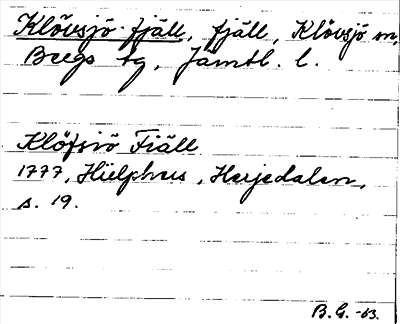 Klövsjö fjäll, fjäll, Klövsjö sn,
Bergs tg, Jämtl. l.
Klöfsiö Fiäll
1777, Hülphers, Herjedalen,
s. 19.
B.G. -63.